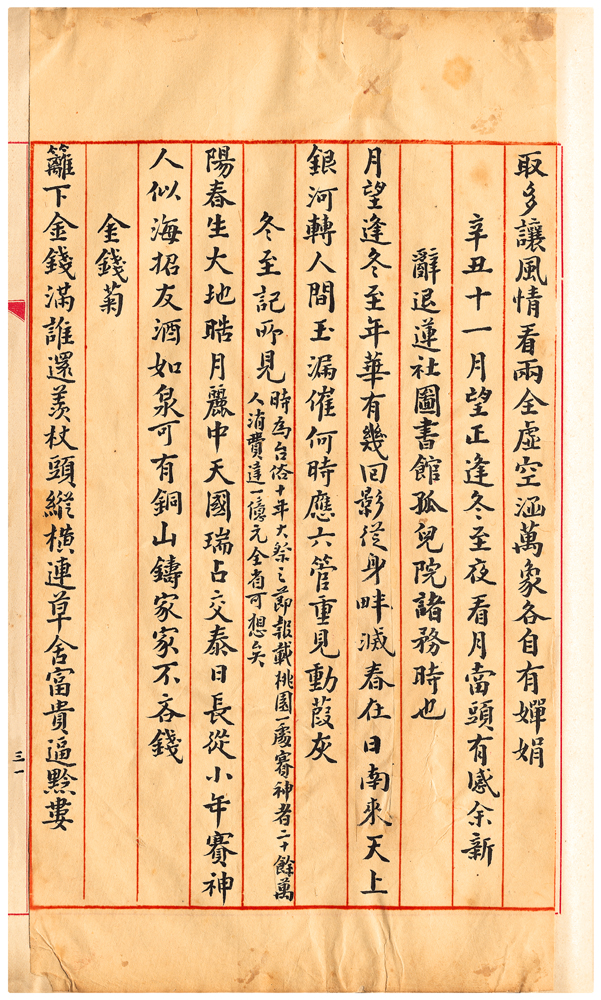 取多讓風情看兩全虛空涵萬象各自有嬋娟
辛丑十一月望正逢冬至夜看月當頭有感余新
辭退蓮社圖書館孤兒院諸務時也
月望逢冬至年華有幾回影從身畔減春住日南來天上
銀河轉人間玉漏催何時應六管重見動葭灰
冬至記所見
時為台俗十年大祭之節報載桃園一處賽神者二十餘萬
人消費達一億元全省可想矣
陽春生大地晧月麗中天國瑞占交泰日長從小年賽神
人似海招友酒如泉可有銅山鑄家家不吝錢
金錢菊
籬下金錢滿誰還羨杖頭縱橫連草舍富貴逼黔婁
三一